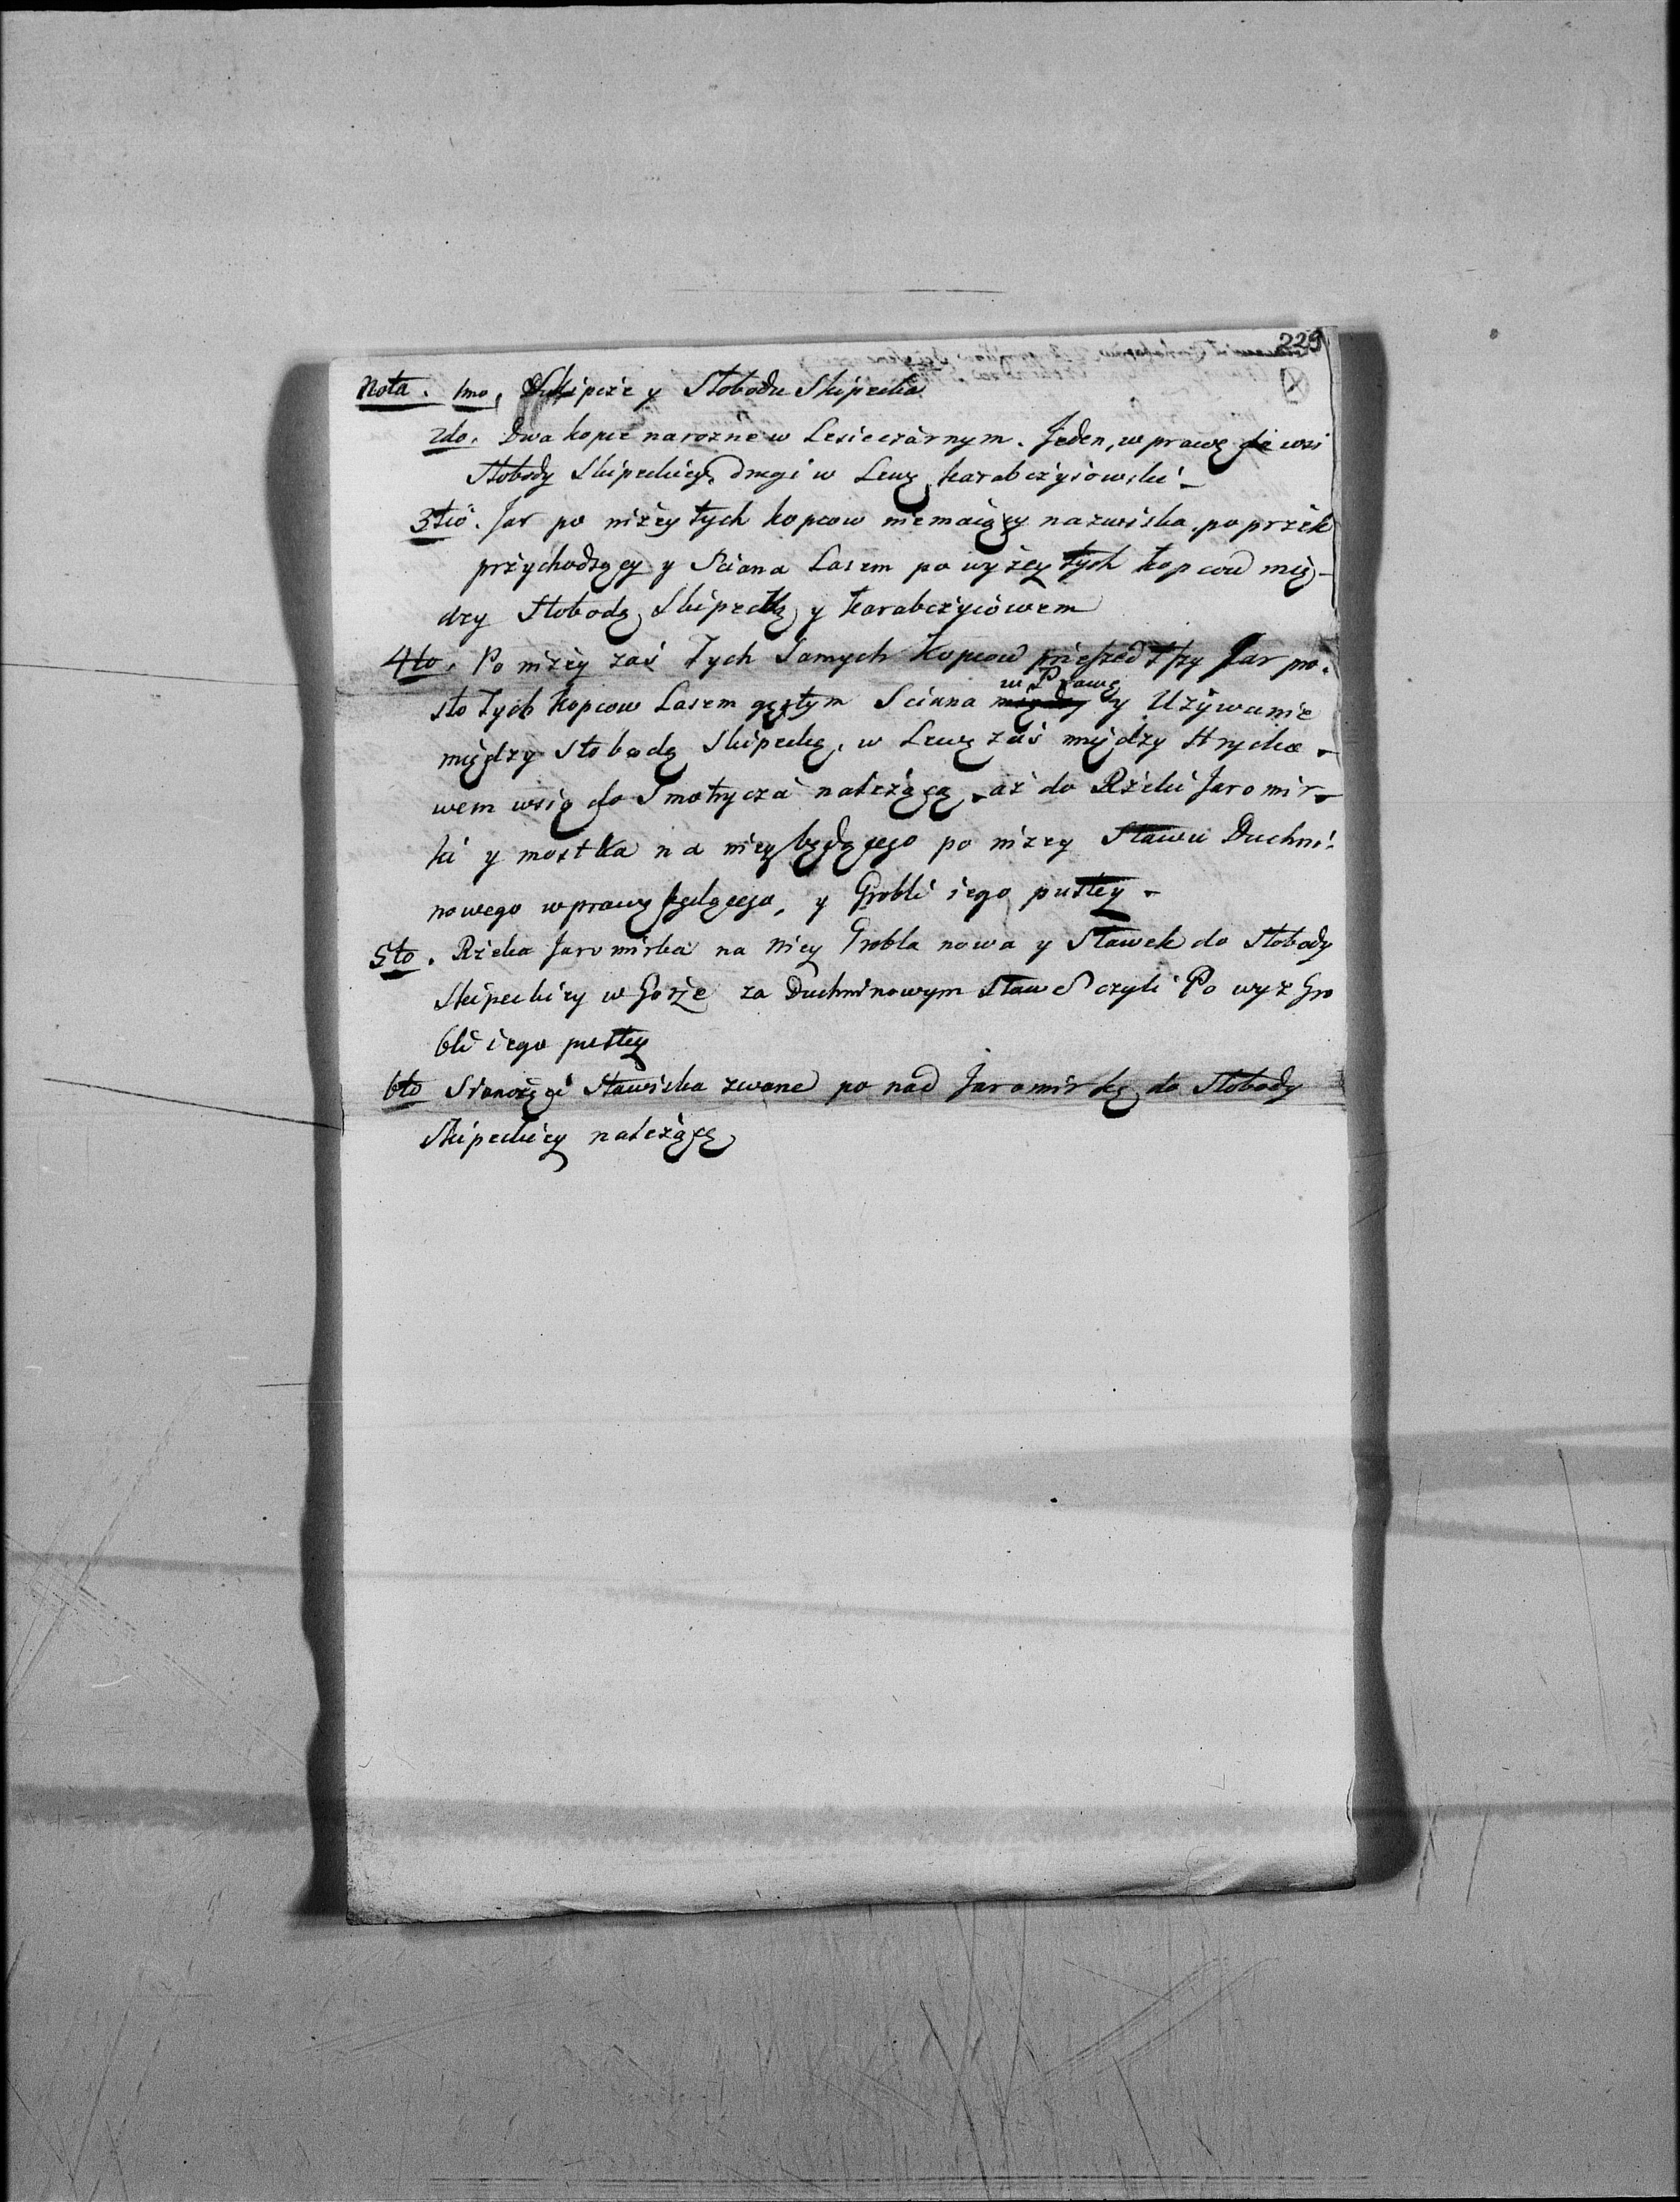 229
Nota. 1mo, Skipcze y Słoboda Skipecka
2do. Dwa kopce narozne w Lesie czarnym. Jeden, w prawę do wsi
Słobody Skipeckiey, drugi w Lewę, Karabczyiowski –
3tio. Jar po niżey tych kopcow niemaiący nazwiska, po przek
przychodzący y Sciana Lasem po wyżey tych kopcow mię-
dzy Słobodą Skipecką y Karabczyiowem
4to. Po niżey zaś Tych samych Kopcow przeszedłszy Jar pro-
sto Tych Kopcow Lasem gęstym Sciana w Prawę y Używanie
między Słobodą Skipecką, w Lewę zaś między Hrycko-
wem wsią do Smotrycza należącą, aż do Rzeki Jaromir-
ki y mostka na niey będącego po niżey Stawu Duchni-
nowego w prawę będącego, y Grobli iego pustey –
5to. Rzeka Jaromirka na niey Grobla nowa y Stawek do Słobody
Skipeckiey w Gorze za Duchninowym Staw czyli Po wyż Gro
bli iego pustey
6to Sianożęci Stawiska zwane po nad Jaromirką do Słobody
Skipeckiey należące